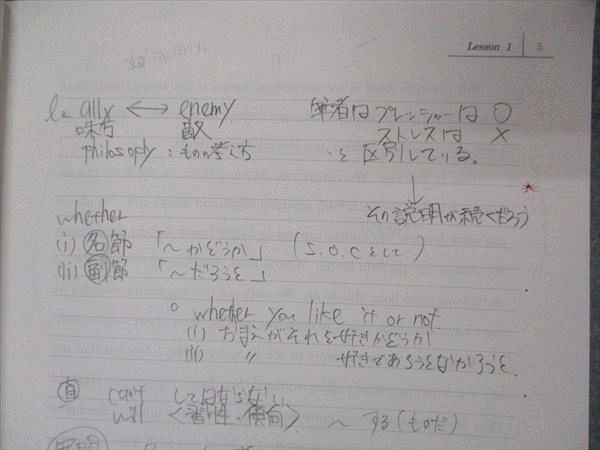 Lesson 1 5
l2 ally ⟷ enemy
味方 敵
philosophy : ものの考え方
筆者は プレッシャーは ○
ストレスは ×
と区別している。
↓
その説明が続くだろう
whether
(i) 名節 「～かどうか」 (S.O.Cとして)
(ii) 副節 「～だろうと」
○ whether you like it or not
(i) おまえがそれを好きかどうか
(ii) 〃 好きであろうとなかろうと
can't してはならない
will 〈習性・傾向〉 ～する(ものだ)